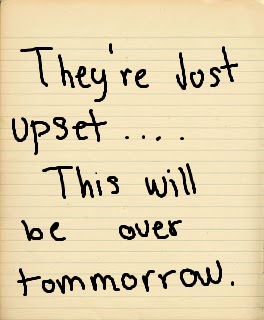 They're Just
upset ....
This will
be over
tommorrow.